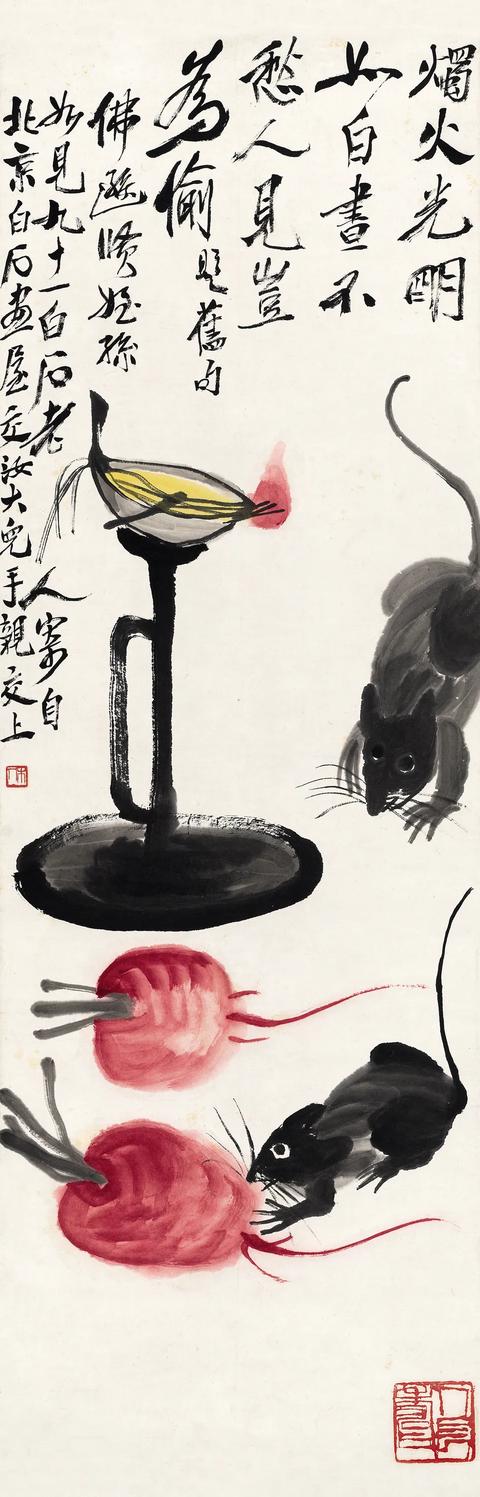 燭火光明
如白晝不
愁人見豈
為偷 舊句
佛 賢姪孫
如見九十一白石老人寄自
北京白石畫屋交汝大兒手親交上